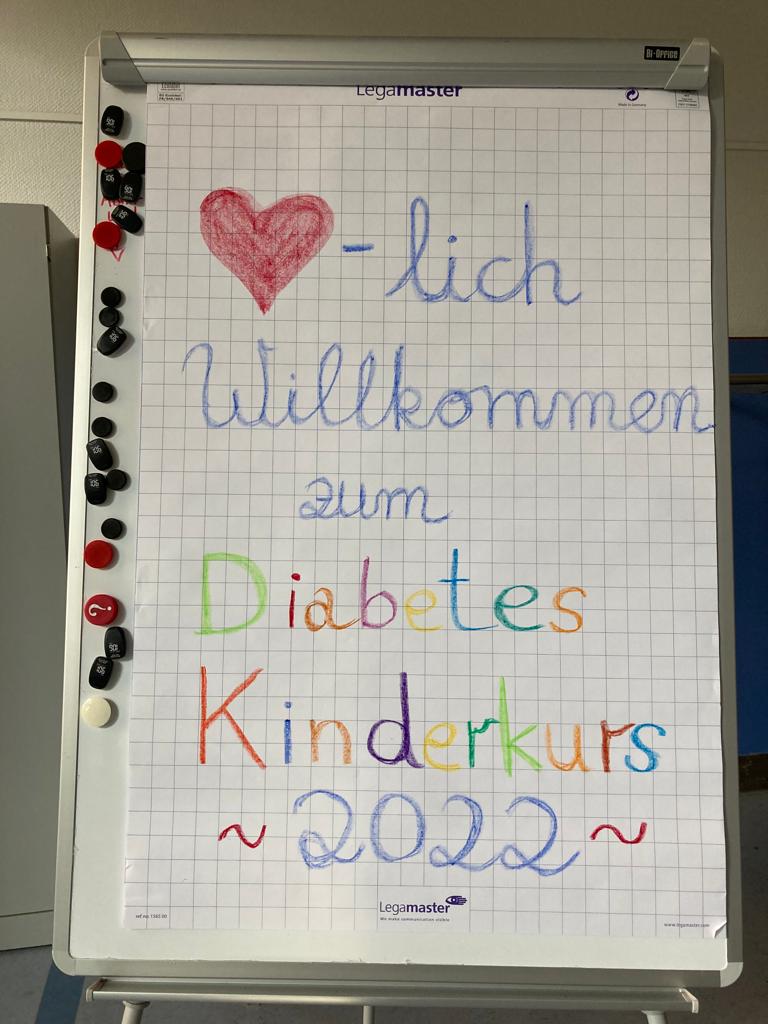 Bi-Office
Legamaster
Made in Germany
❤-lich
Willkommen
zum
Diabetes
Kinderkurs
~ 2022 ~
?
ref no. 1565 00
Legamaster
We make communication visible
www.legamaster.com